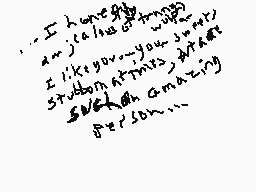 ...I honestly
am jealous of
I like you... your sweet,
stubborn at times, but are
such an amazing
person...